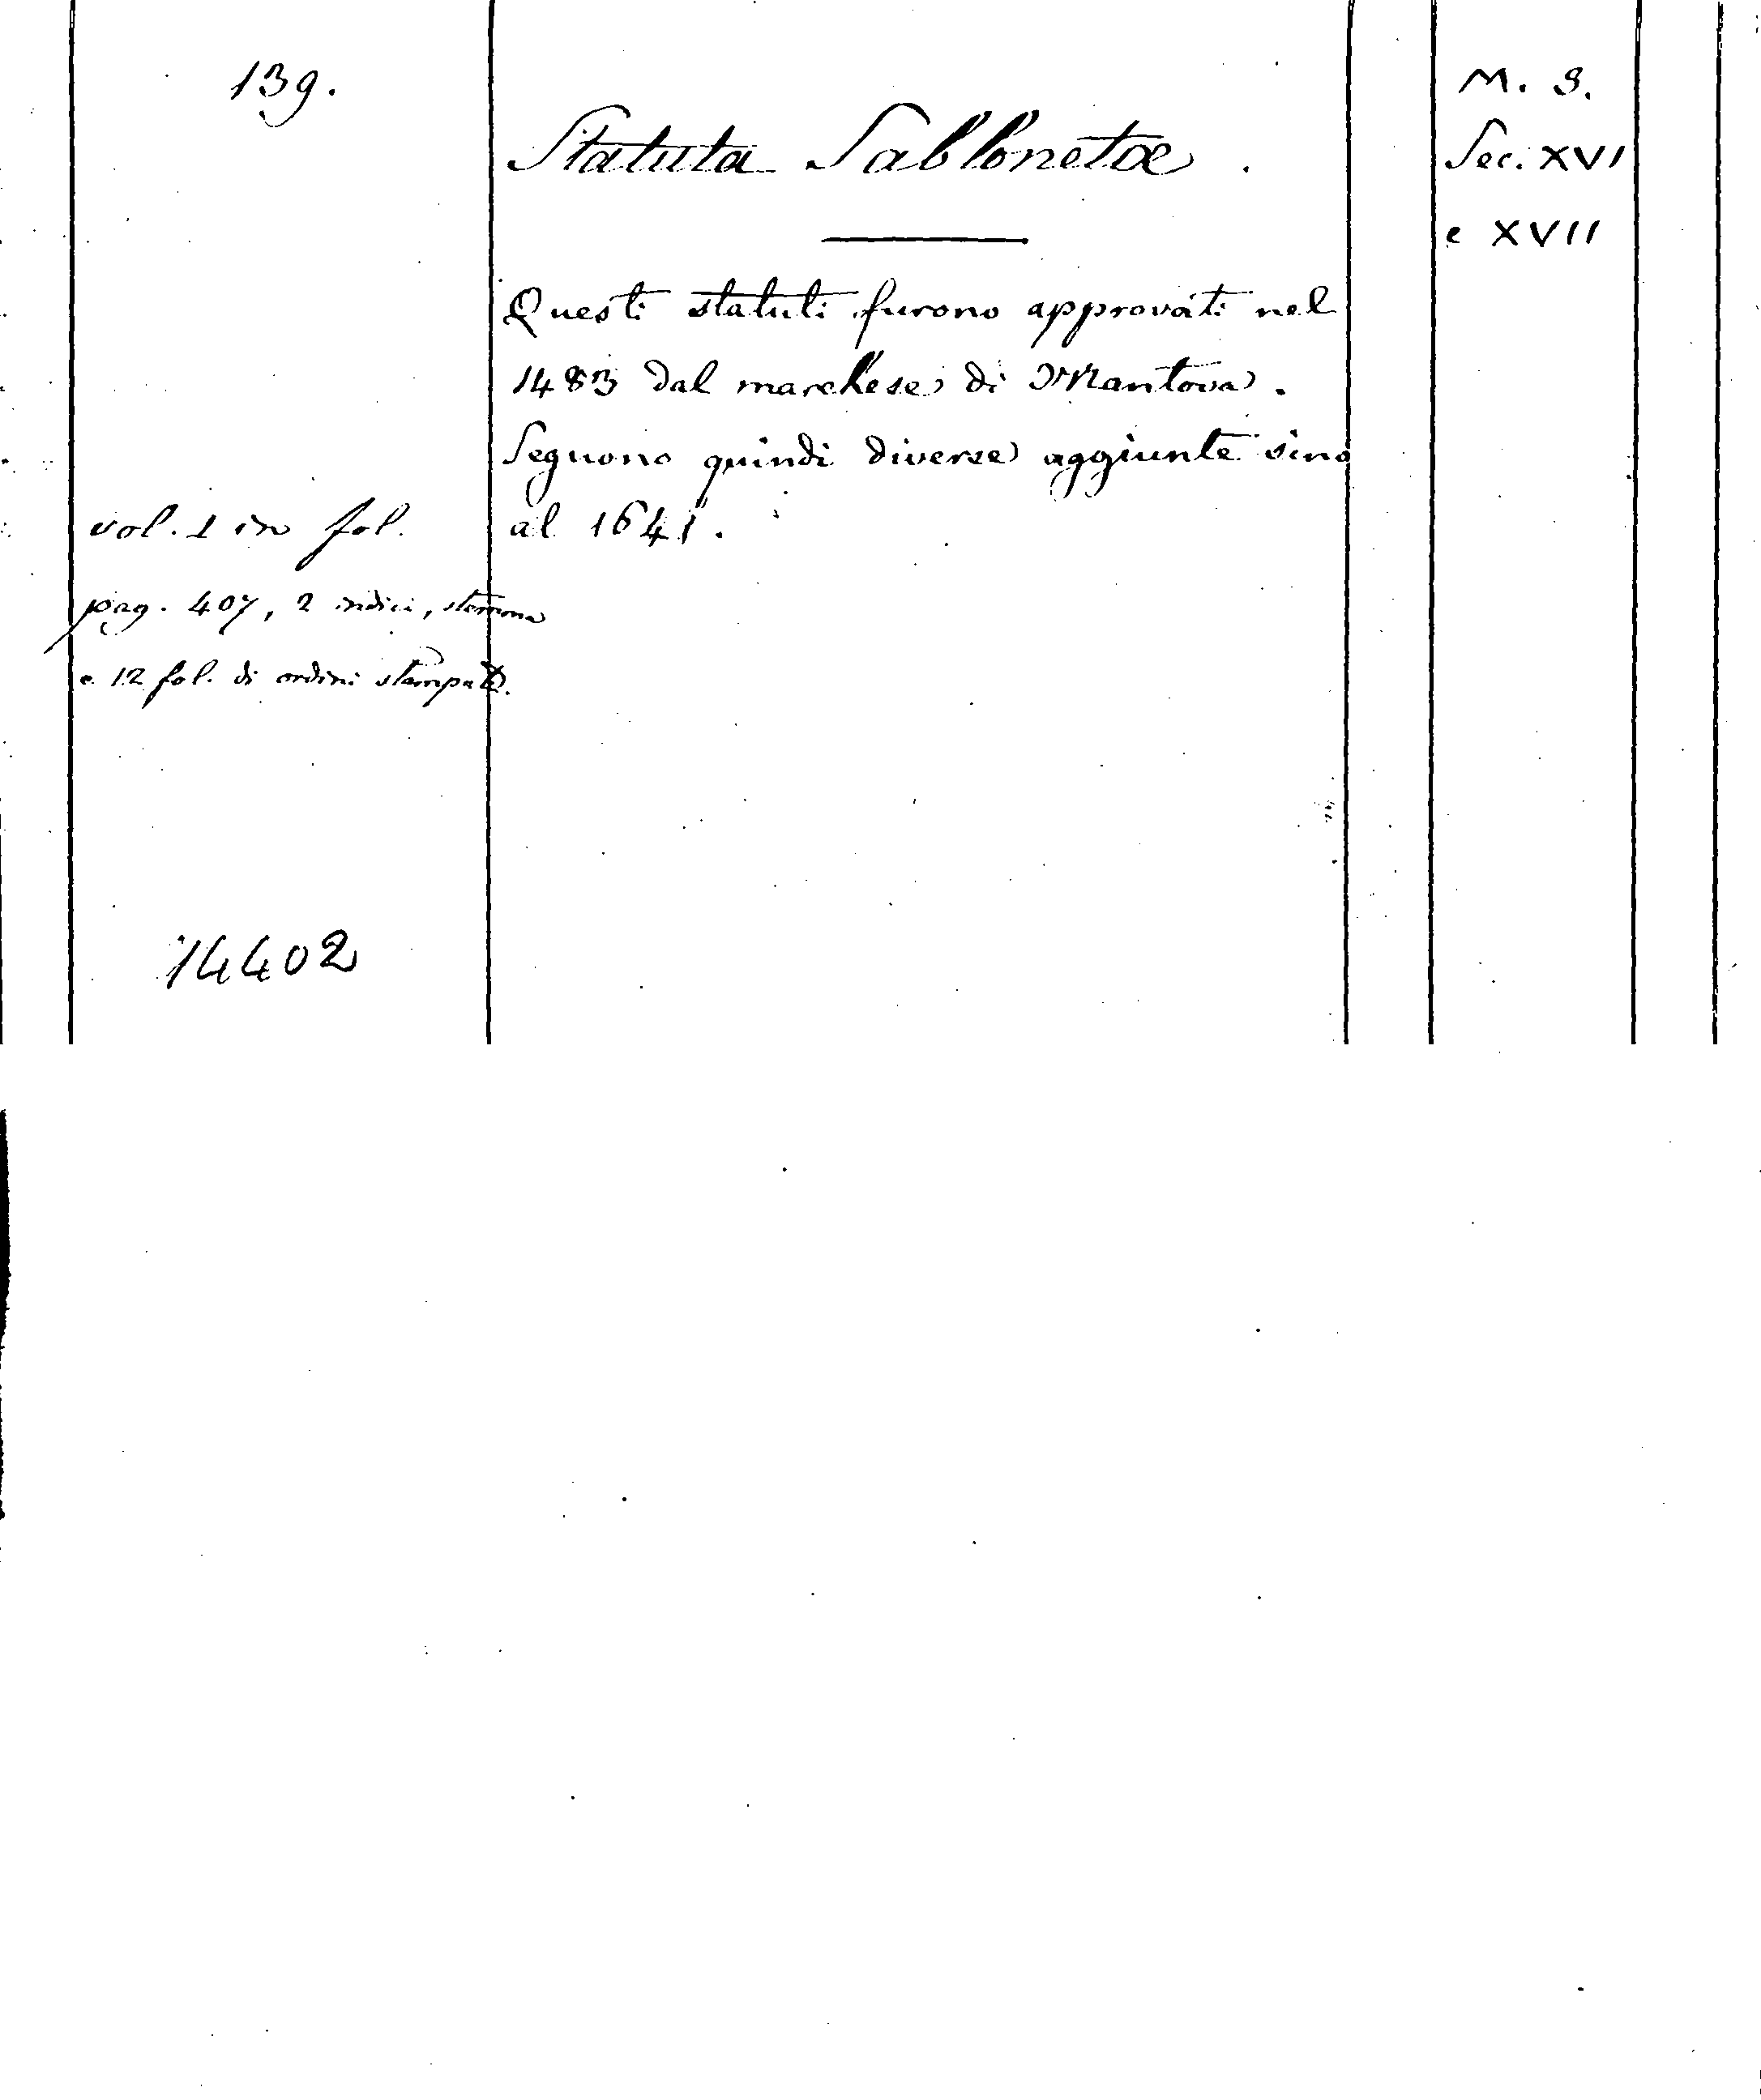 139.
vol. 1 in fol.
pag. 407, 2 indici, stemma
e 12 fol. di ordini stampati.
14402
Statuta Sablonetæ.
Questi statuti furono approvati nel
1483 dal marchese di Mantova.
Seguono quindi diverse aggiunte sino
al 1641.
M. S.
Sec. XVI
e XVII